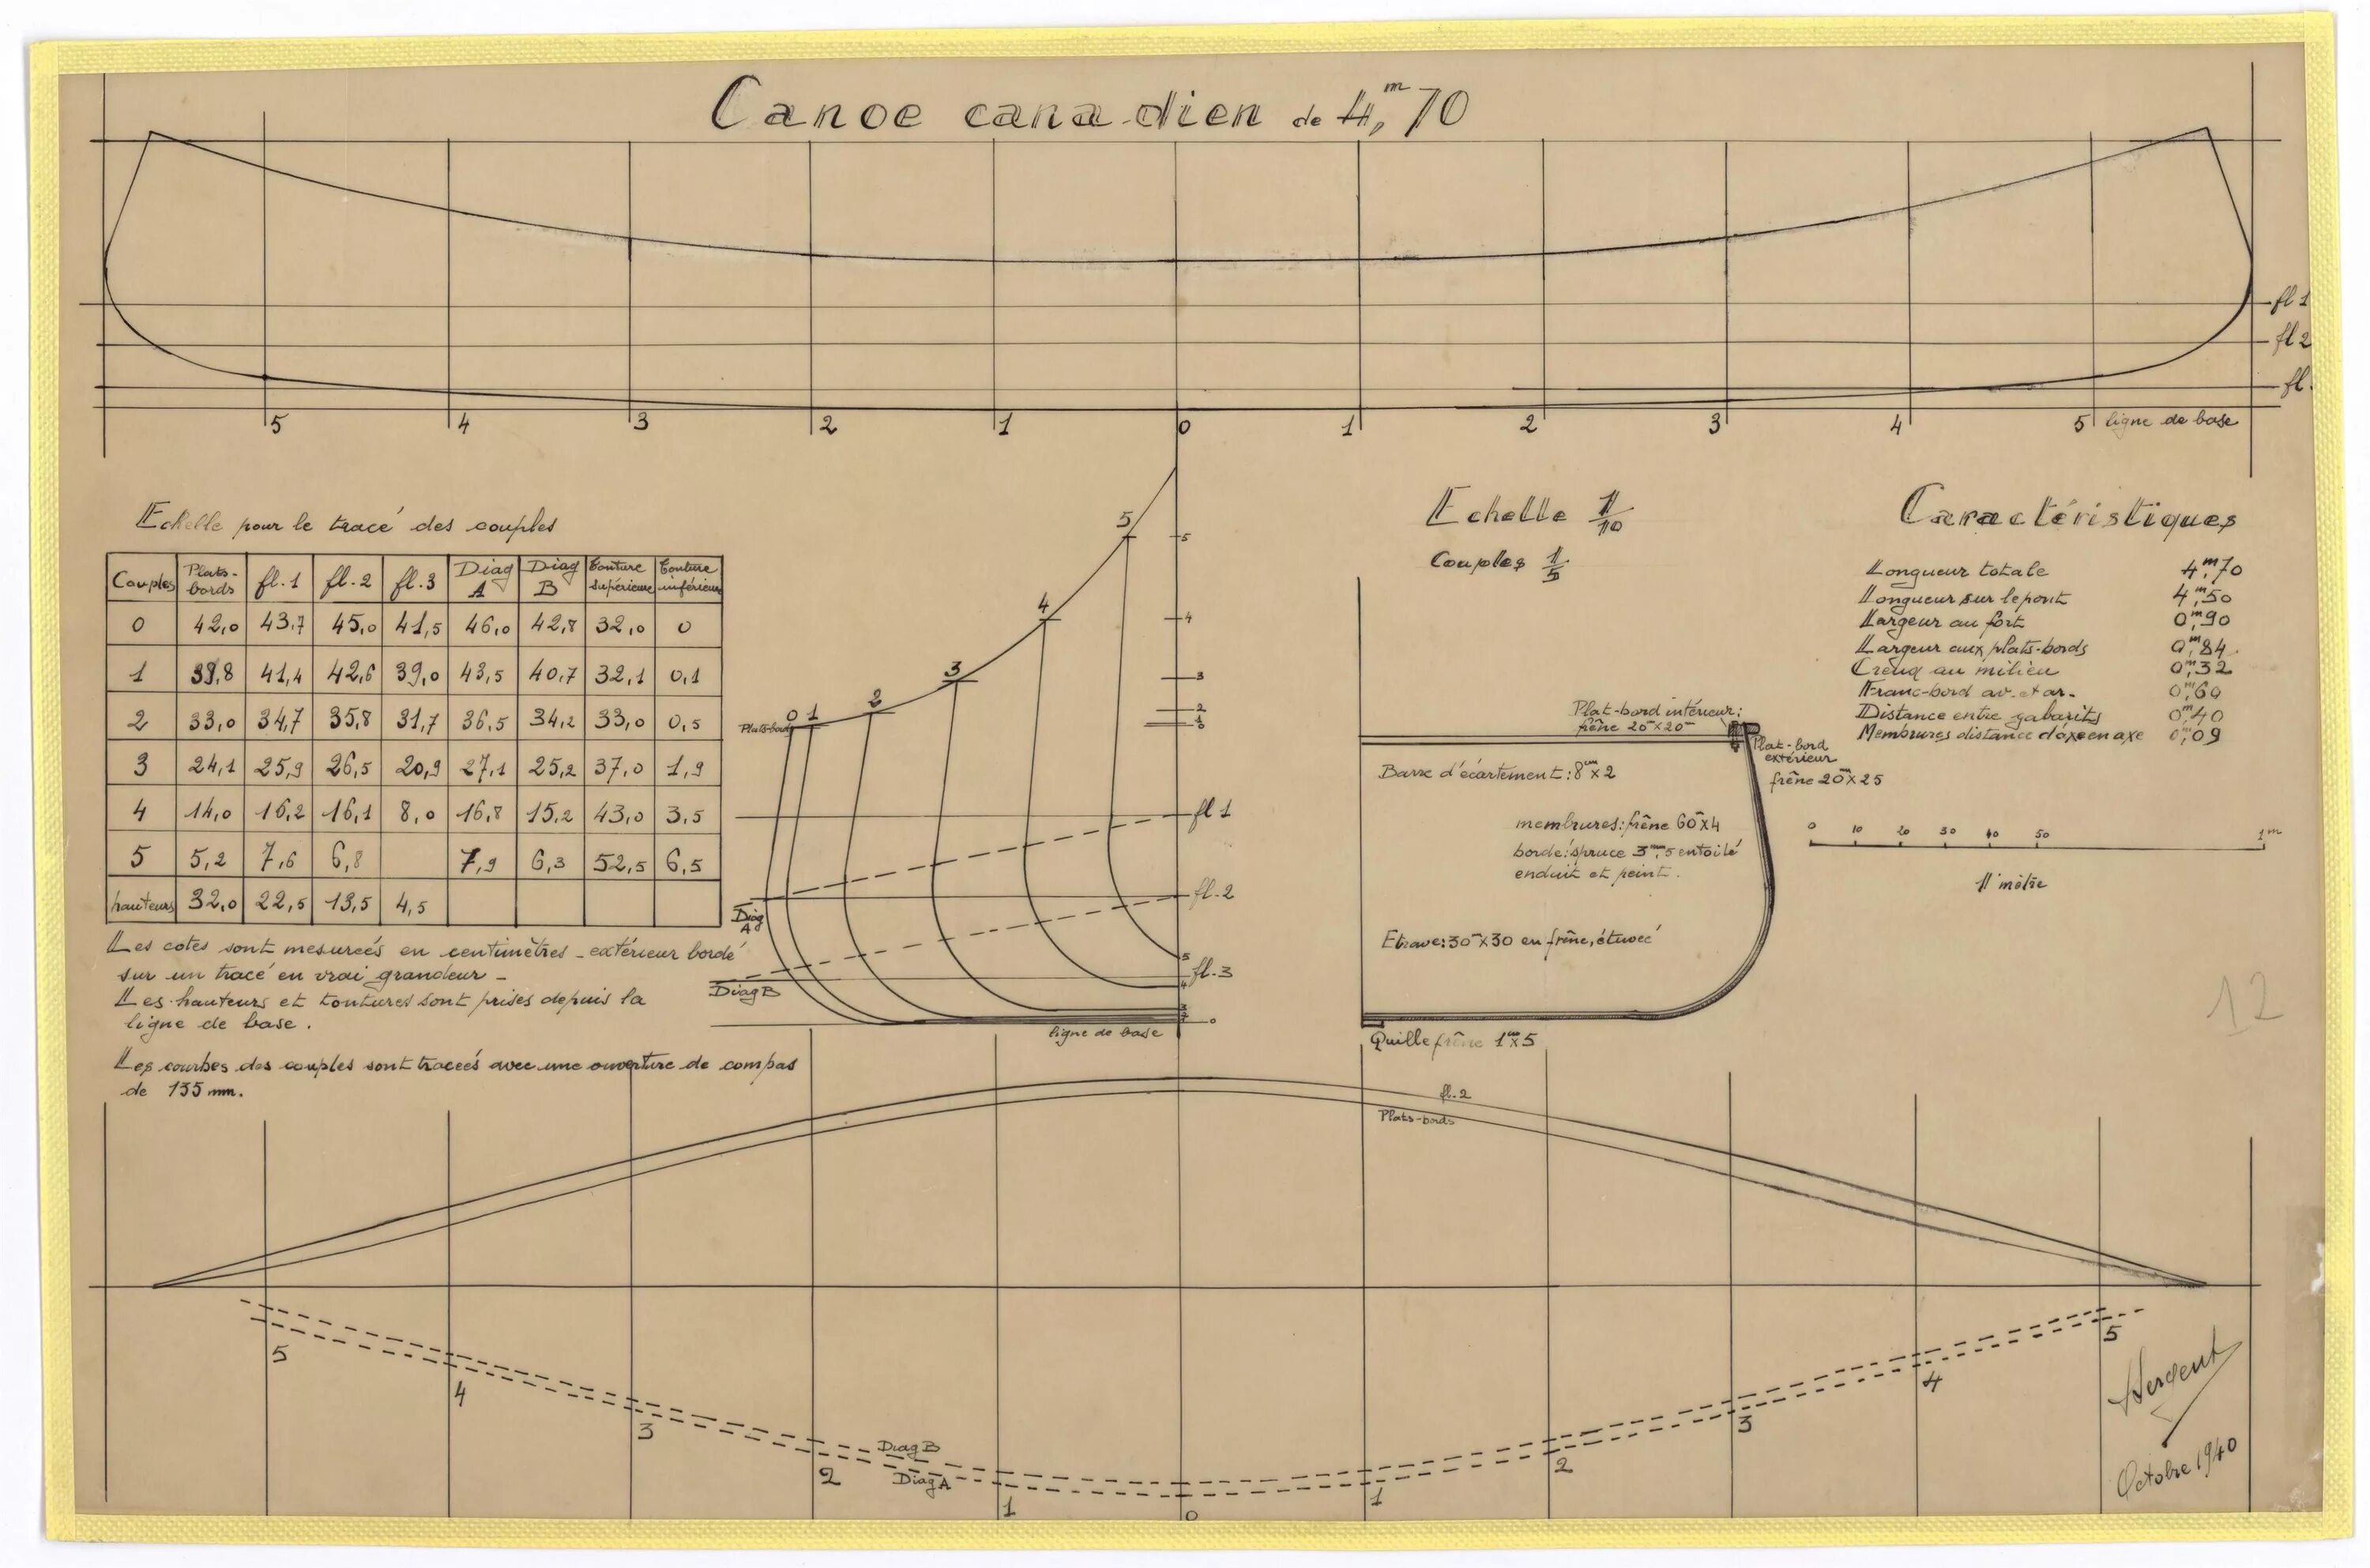 Canoe canadien de 4,ᵐ70
fl 1
fl 2
fl.
5 4 3 2 1 0 1 2 3 4 5 ligne de base
Echelle pour le tracé des couples
Couples Plats-bords fl.1 fl.2 fl.3 Diag A Diag B Tonture supérieure Tonture inférieure
0 42,0 43,7 45,0 41,5 46,0 42,8 32,0 0
1 39,8 41,4 42,6 39,0 43,5 40,7 32,1 0,1
2 33,0 34,7 35,8 31,7 36,5 34,2 33,0 0,5
3 24,1 25,9 26,5 20,9 27,1 25,2 37,0 1,9
4 14,0 16,2 16,1 8,0 16,8 15,2 43,0 3,5
5 5,2 7,6 6,8 7,9 6,3 52,5 6,5
hauteurs 32,0 22,5 13,5 4,5
Les cotes sont mesureés en centimètres - extérieur bordé
sur un tracé en vrai grandeur -
Les hauteurs et tontures sont prises depuis la
ligne de base.
Les courbes des couples sont traceés avec une ouverture de compas
de 135 mm.
5
4
3
2
0 1
Plats-bords
5
4
3
2
1
0
fl 1
fl.2
fl.3
Diag A
Diag B
5
4
3
0
ligne de base
Echelle 1/10
Couples 1/5
Plat-bord intérieur:
frêne 20ᵐ×20
Plat-bord
extérieur
frêne 20ᵐ×25
Barre d'écartement: 8ᶜᵐ×2
membrures: frêne 60ᵐ×4
bordé: spruce 3ᵐᵐ,5 entoilé
enduit et peint.
Etrave: 30ᵐ×30 en frêne, étuvée
Quille frêne 1ᶜᵐ×5
Caractéristiques
Longueur totale 4,ᵐ70
Longueur sur le pont 4,ᵐ50
Largeur au fort 0,ᵐ90
Largeur aux plats-bords 0,ᵐ84
Creux au milieu 0,ᵐ32
Franc-bord av. et ar. 0,ᵐ60
Distance entre gabarits 0,ᵐ40
Membrures distance d'axe en axe 0,ᵐ09
0 10 20 30 40 50 1ᵐ
1 mètre
12
fl.2
Plats-bords
Diag B
Diag A
5 4 3 2 1 0 1 2 3 4 5
Sergent
Octobre 1940